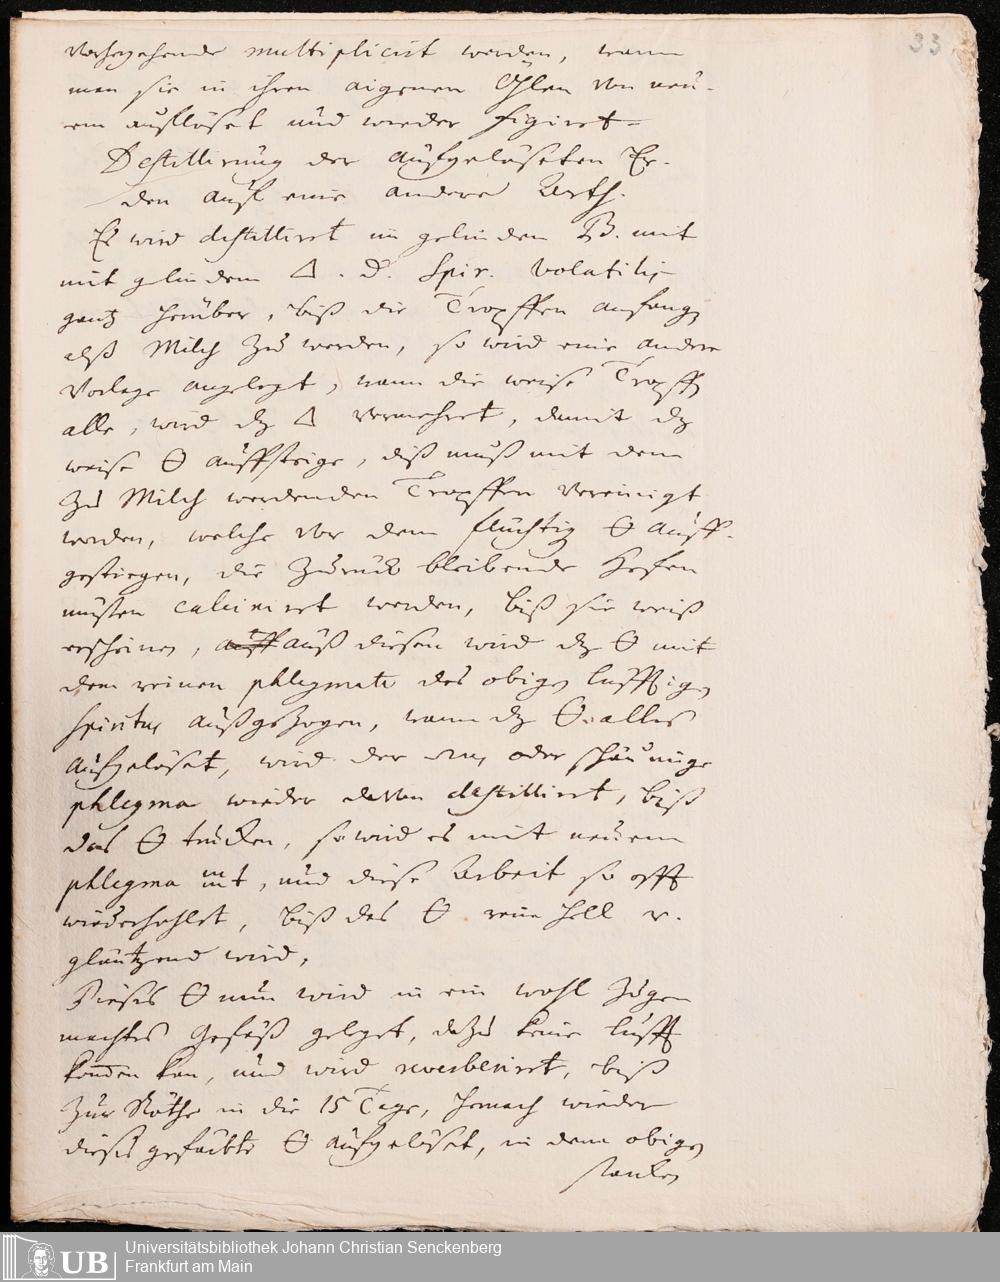 33
Vorhergehende multiplicirt werden, wann
man sie in ihren aigenen Öhlen von neu-
em aufflöset und wieder figiret
Destillirung der aufgelöseten Er-
den auf eine andere Arth.
Es wird destilliret im gelinden B. mit
mit gelindem △. D. Spir. volatilis
gantz herüber, biß die Tropffen anfangen
alß Milch zu werden, so wird eine andere
Vorlage angelegt, wann die weise Tropffen
alle, wird dz △ vermehret, damit dz
weise 🜔 auffsteige, diß muß mit dem
zu Milch werdenden Tropffen vereinigt
werden, welche vor dem flüchtig 🜔 auff-
gestiegen, die zuruck bleibende Hefen
müsten calciniret werden, biß sie weiß
erscheinen, auß diesen wird dz 🜔 mit
dem reinen phlegmate des obigen lufftigen
Spiritus außgezogen, wann dz 🜔 alles
aufgelöset, wird der oder schäumige
phlegma wieder davon destilliret, biß
das 🜔 trucken, so wird es mit neuem
phlegma und diese Arbeit so offt
wiederhohlet, biß das 🜔 rein hell v.
gläntzend wird,
Dieses 🜔 nun wird in ein wohl zuge
machtes Gefäß geleget, dazu keine lufft
kom̅en kan, und wird reverberiret, biß
zur Röthe in die 15 Tage, hernach wieder
dieses gefärbte 🜔 aufgelöset, in dem obigen
starken
Universitätsbibliothek Johann Christian Senckenberg
UB Frankfurt am Main